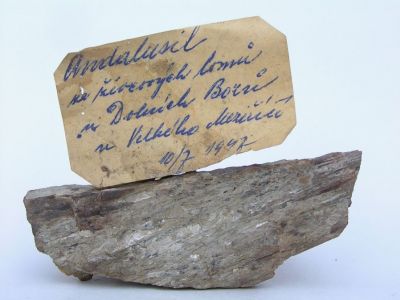 Andalusit
ze živcových lomů
v Dolních Borů
u Velkého Meziříčí
10/7 1947